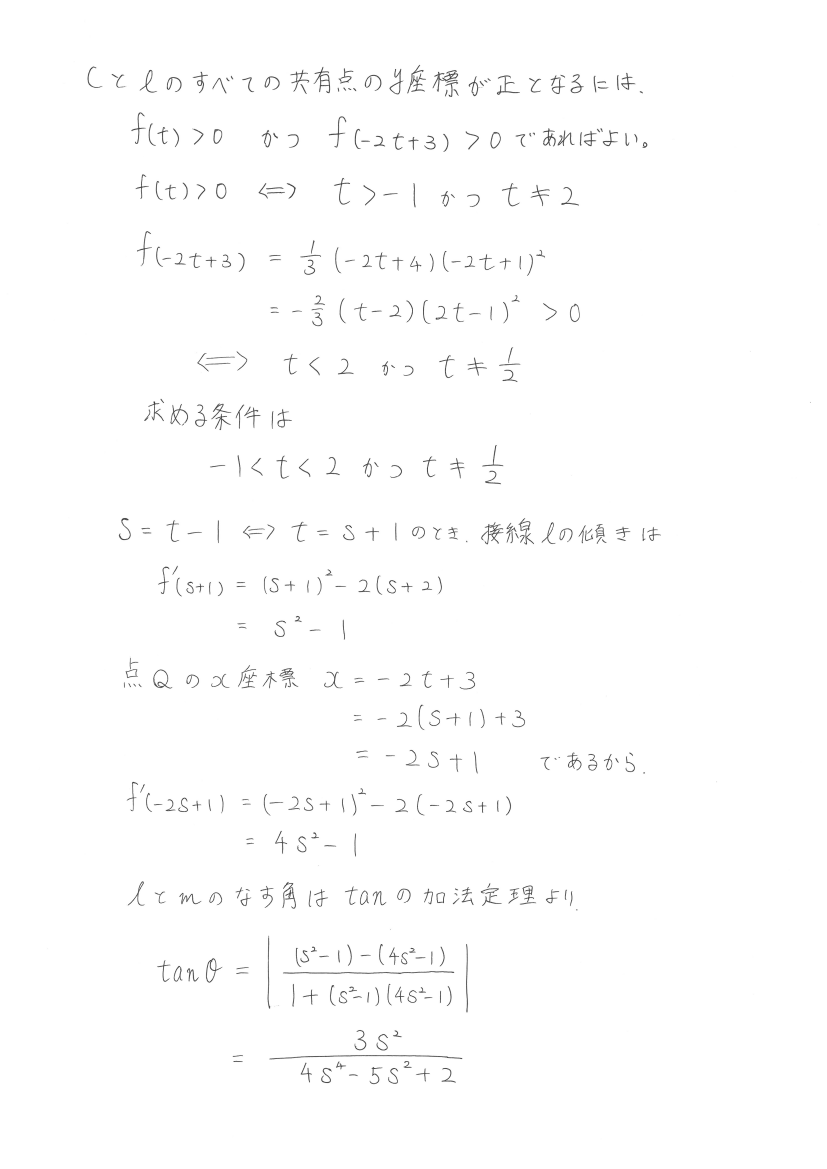 Cとlのすべての共有点のy座標が正となるには、
f(t)>0 かつ f(-2t+3)>0 であればよい。
f(t)>0 ⇔ t>-1 かつ t≠2
f(-2t+3) = 1/3 (-2t+4)(-2t+1)²
= -2/3 (t-2)(2t-1)² >0
⇔ t<2 かつ t≠1/2
求める条件は
-1<t<2 かつ t≠1/2
S=t-1 ⇔ t=S+1 のとき、接線lの傾きは
f'(S+1) = (S+1)²-2(S+2)
= S²-1
点Qのx座標 x=-2t+3
=-2(S+1)+3
=-2S+1 であるから、
f'(-2S+1) = (-2S+1)²-2(-2S+1)
= 4S²-1
lとmのなす角は tanの加法定理より
tanθ = |((S²-1)-(4S²-1))/(1+(S²-1)(4S²-1))|
= 3S²/(4S⁴-5S²+2)